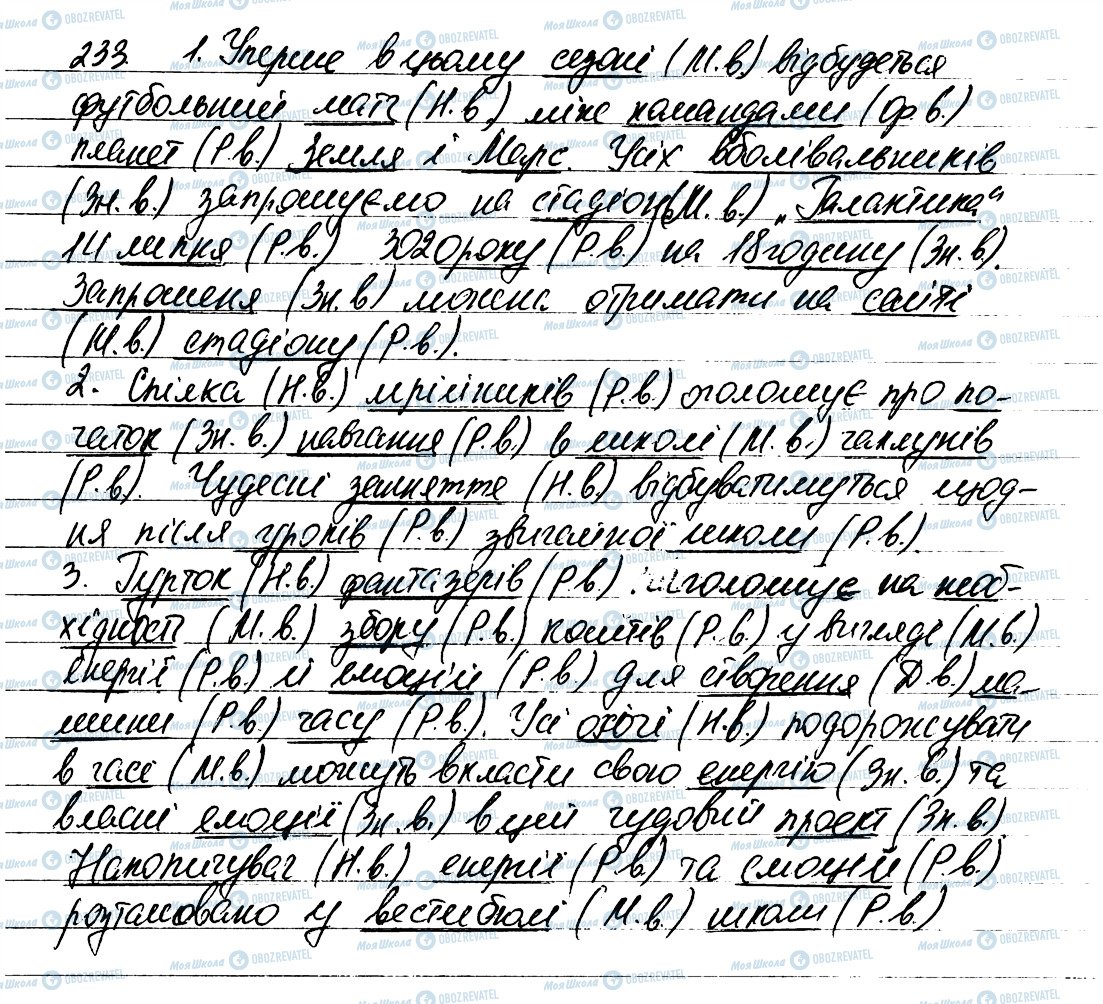 233. 1. Уперше в цьому сезоні (М.в.) відбудеться
футбольний матч (Н.в.) між командами (Ор.в.)
планет (Р.в.) Земля і Марс. Усіх вболівальників
(Зн. в.) запрошуємо на стадіон (М. в.) „Галактика"
14 липня (Р.в.) 3020 року (Р.в.) на 18 годину (Зн.в.).
Запрошення (Зн.в) можна отримати на сайті
(М.в.) стадіону (Р.в.).
2. Спілка (Н.в.) мрійників (Р.в.) оголошує про по-
чаток (Зн. в.) навчання (Р.в.) в школі (М.в.) чаклунів
(Р.в.). Чудесні заняття (Н.в.) відбуватимуться щод-
ня після уроків (Р.в.) звичайної школи (Р.в.).
3. Гурток (Н.в.) фантазерів (Р.в.) наголошує на необ-
хідності (М.в.) збору (Р.в.) коштів (Р.в.) у вигляді (М.в.)
енергії (Р.в.) й емоцій (Р.в.) для створення (Д.в.) ма-
шини (Р.в.) часу (Р.в.). Усі охочі (Н.в.) подорожувати
в часі (М.в.) можуть вкласти свою енергію (Зн. в.) та
власні емоції (Зн.в.) в цей чудовий проект (Зн.в.).
Накопичувач (Н.в.) енергії (Р.в.) та емоцій (Р.в.)
розташовано у вестибюлі (М.в.) школи (Р.в.)